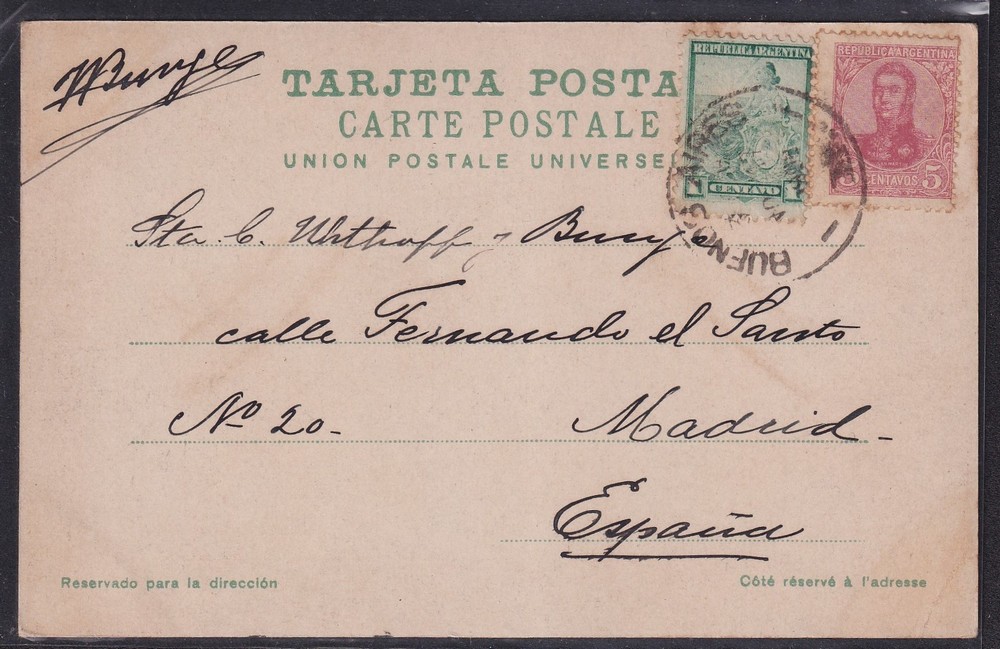 HBunge
TARJETA POSTA
CARTE POSTALE
UNION POSTALE UNIVERSE
REPUBLICA ARGENTINA
1 CENTAVO 1
REPUBLICA ARGENTINA
5 CENTAVOS 5
BUENOS AIRES
Sta. C. Witthoff y Bunge
calle Fernando el Santo
Nº 20- Madrid-
España
Reservado para la dirección
Côté réservé à l'adresse